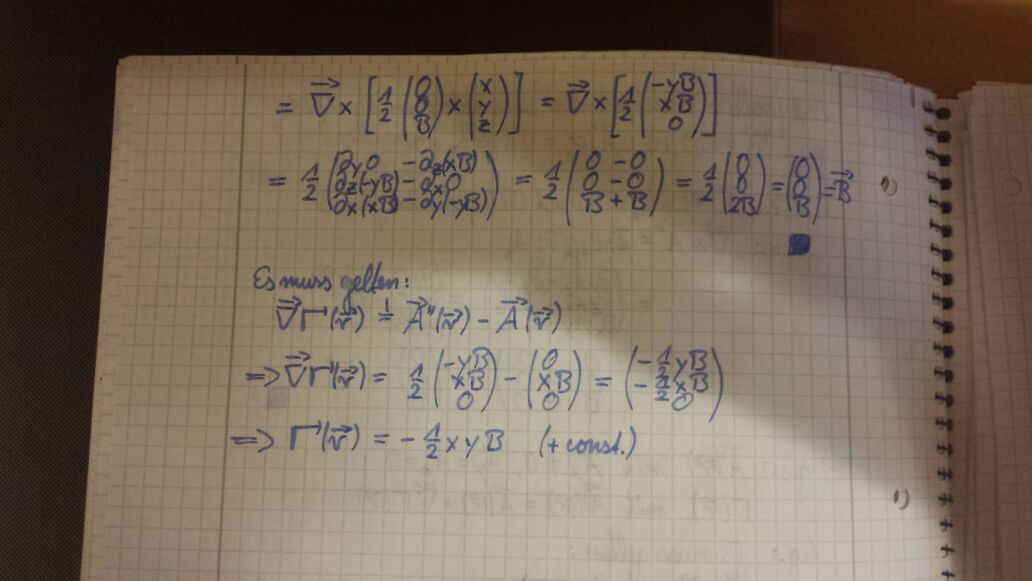 = ∇⃗ × [1/2 (0 0 B) × (x y z)] = ∇⃗ × [1/2 (-yB xB 0)]
= 1/2 (∂y0 - ∂z(xB) ∂z(-yB) - ∂x0 ∂x(xB) - ∂y(-yB)) = 1/2 (0 - 0 0 - 0 B + B) = 1/2 (0 0 2B) = (0 0 B) = B⃗
Es muss gelten:
∇⃗Γ(r⃗) =! A⃗"(r⃗) - A⃗(r⃗)
=> ∇⃗Γ(r⃗) = 1/2 (-yB xB 0) - (0 xB 0) = (-1/2 yB -1/2 xB 0)
=> Γ(r⃗) = - 1/2 x y B (+ const.)